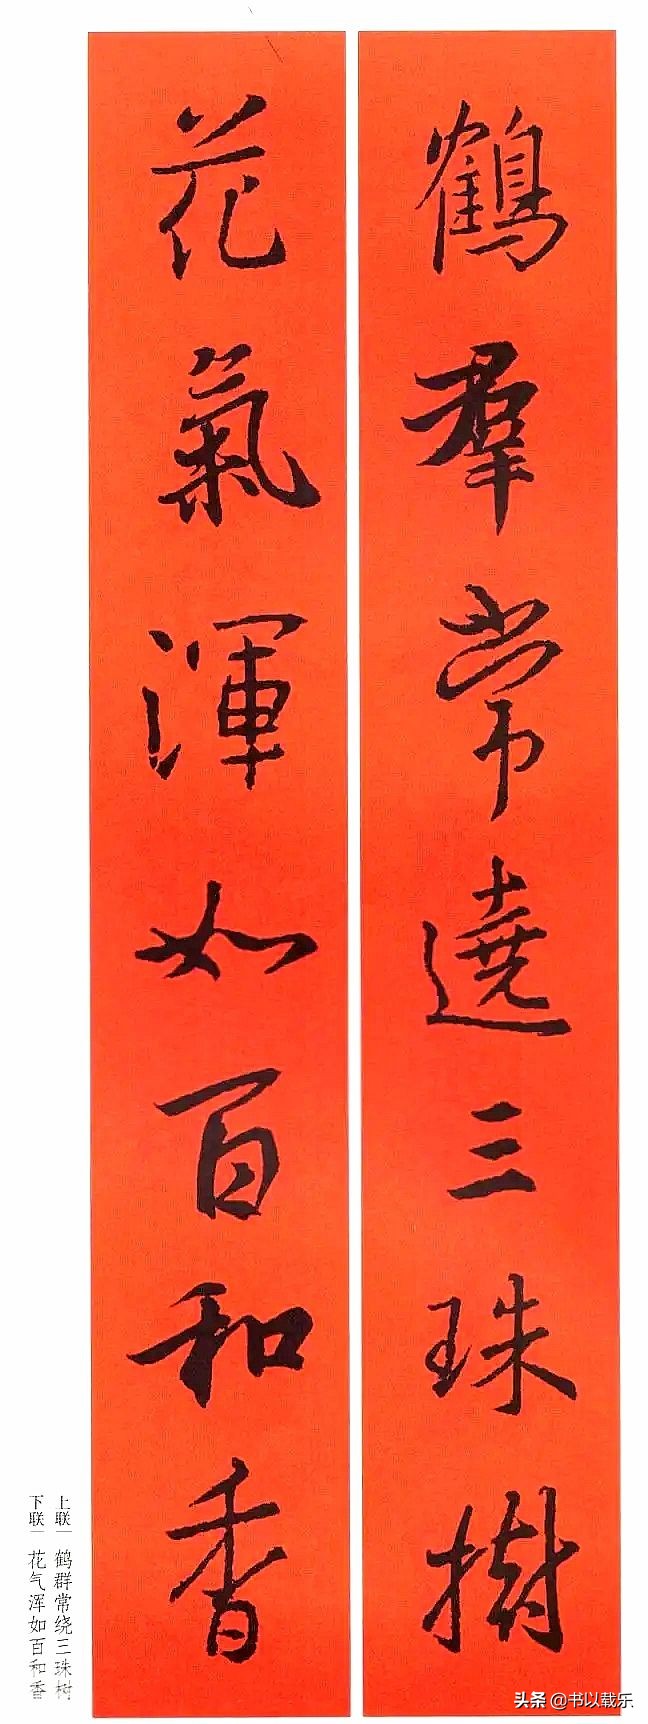 鶴羣常遶三珠樹
花氣渾如百和香
上联｜鹤群常绕三珠树
下联｜花气浑如百和香
头条 @书以载乐